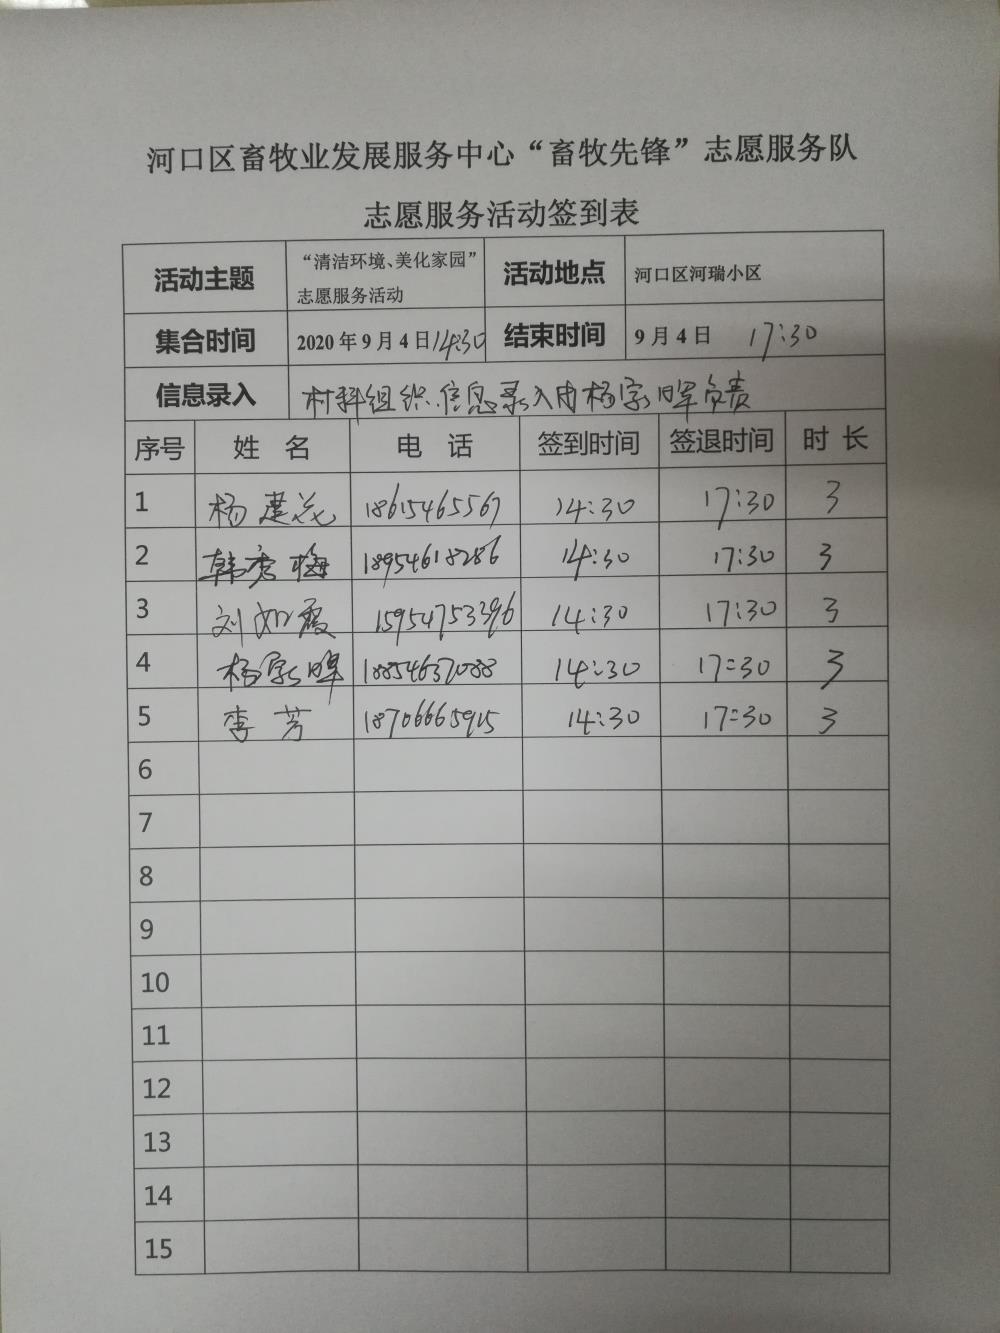 河口区畜牧业发展服务中心“畜牧先锋”志愿服务队
志愿服务活动签到表
活动主题 “清洁环境、美化家园”志愿服务活动 活动地点 河口区河瑞小区
集合时间 2020年9月4日14:30 结束时间 9月4日 17:30
信息录入 组织.信息录入由杨家晖负责
序号 姓 名 电 话 签到时间 签退时间 时 长
1 杨建花 18615465567 14:30 17:30 3
2 韩秀梅 18954618286 14:30 17:30 3
3 刘如霞 15954753396 14:30 17:30 3
4 杨家晖 18854637088 14:30 17:30 3
5 李芳 18706665915 14:30 17:30 3
6
7
8
9
10
11
12
13
14
15